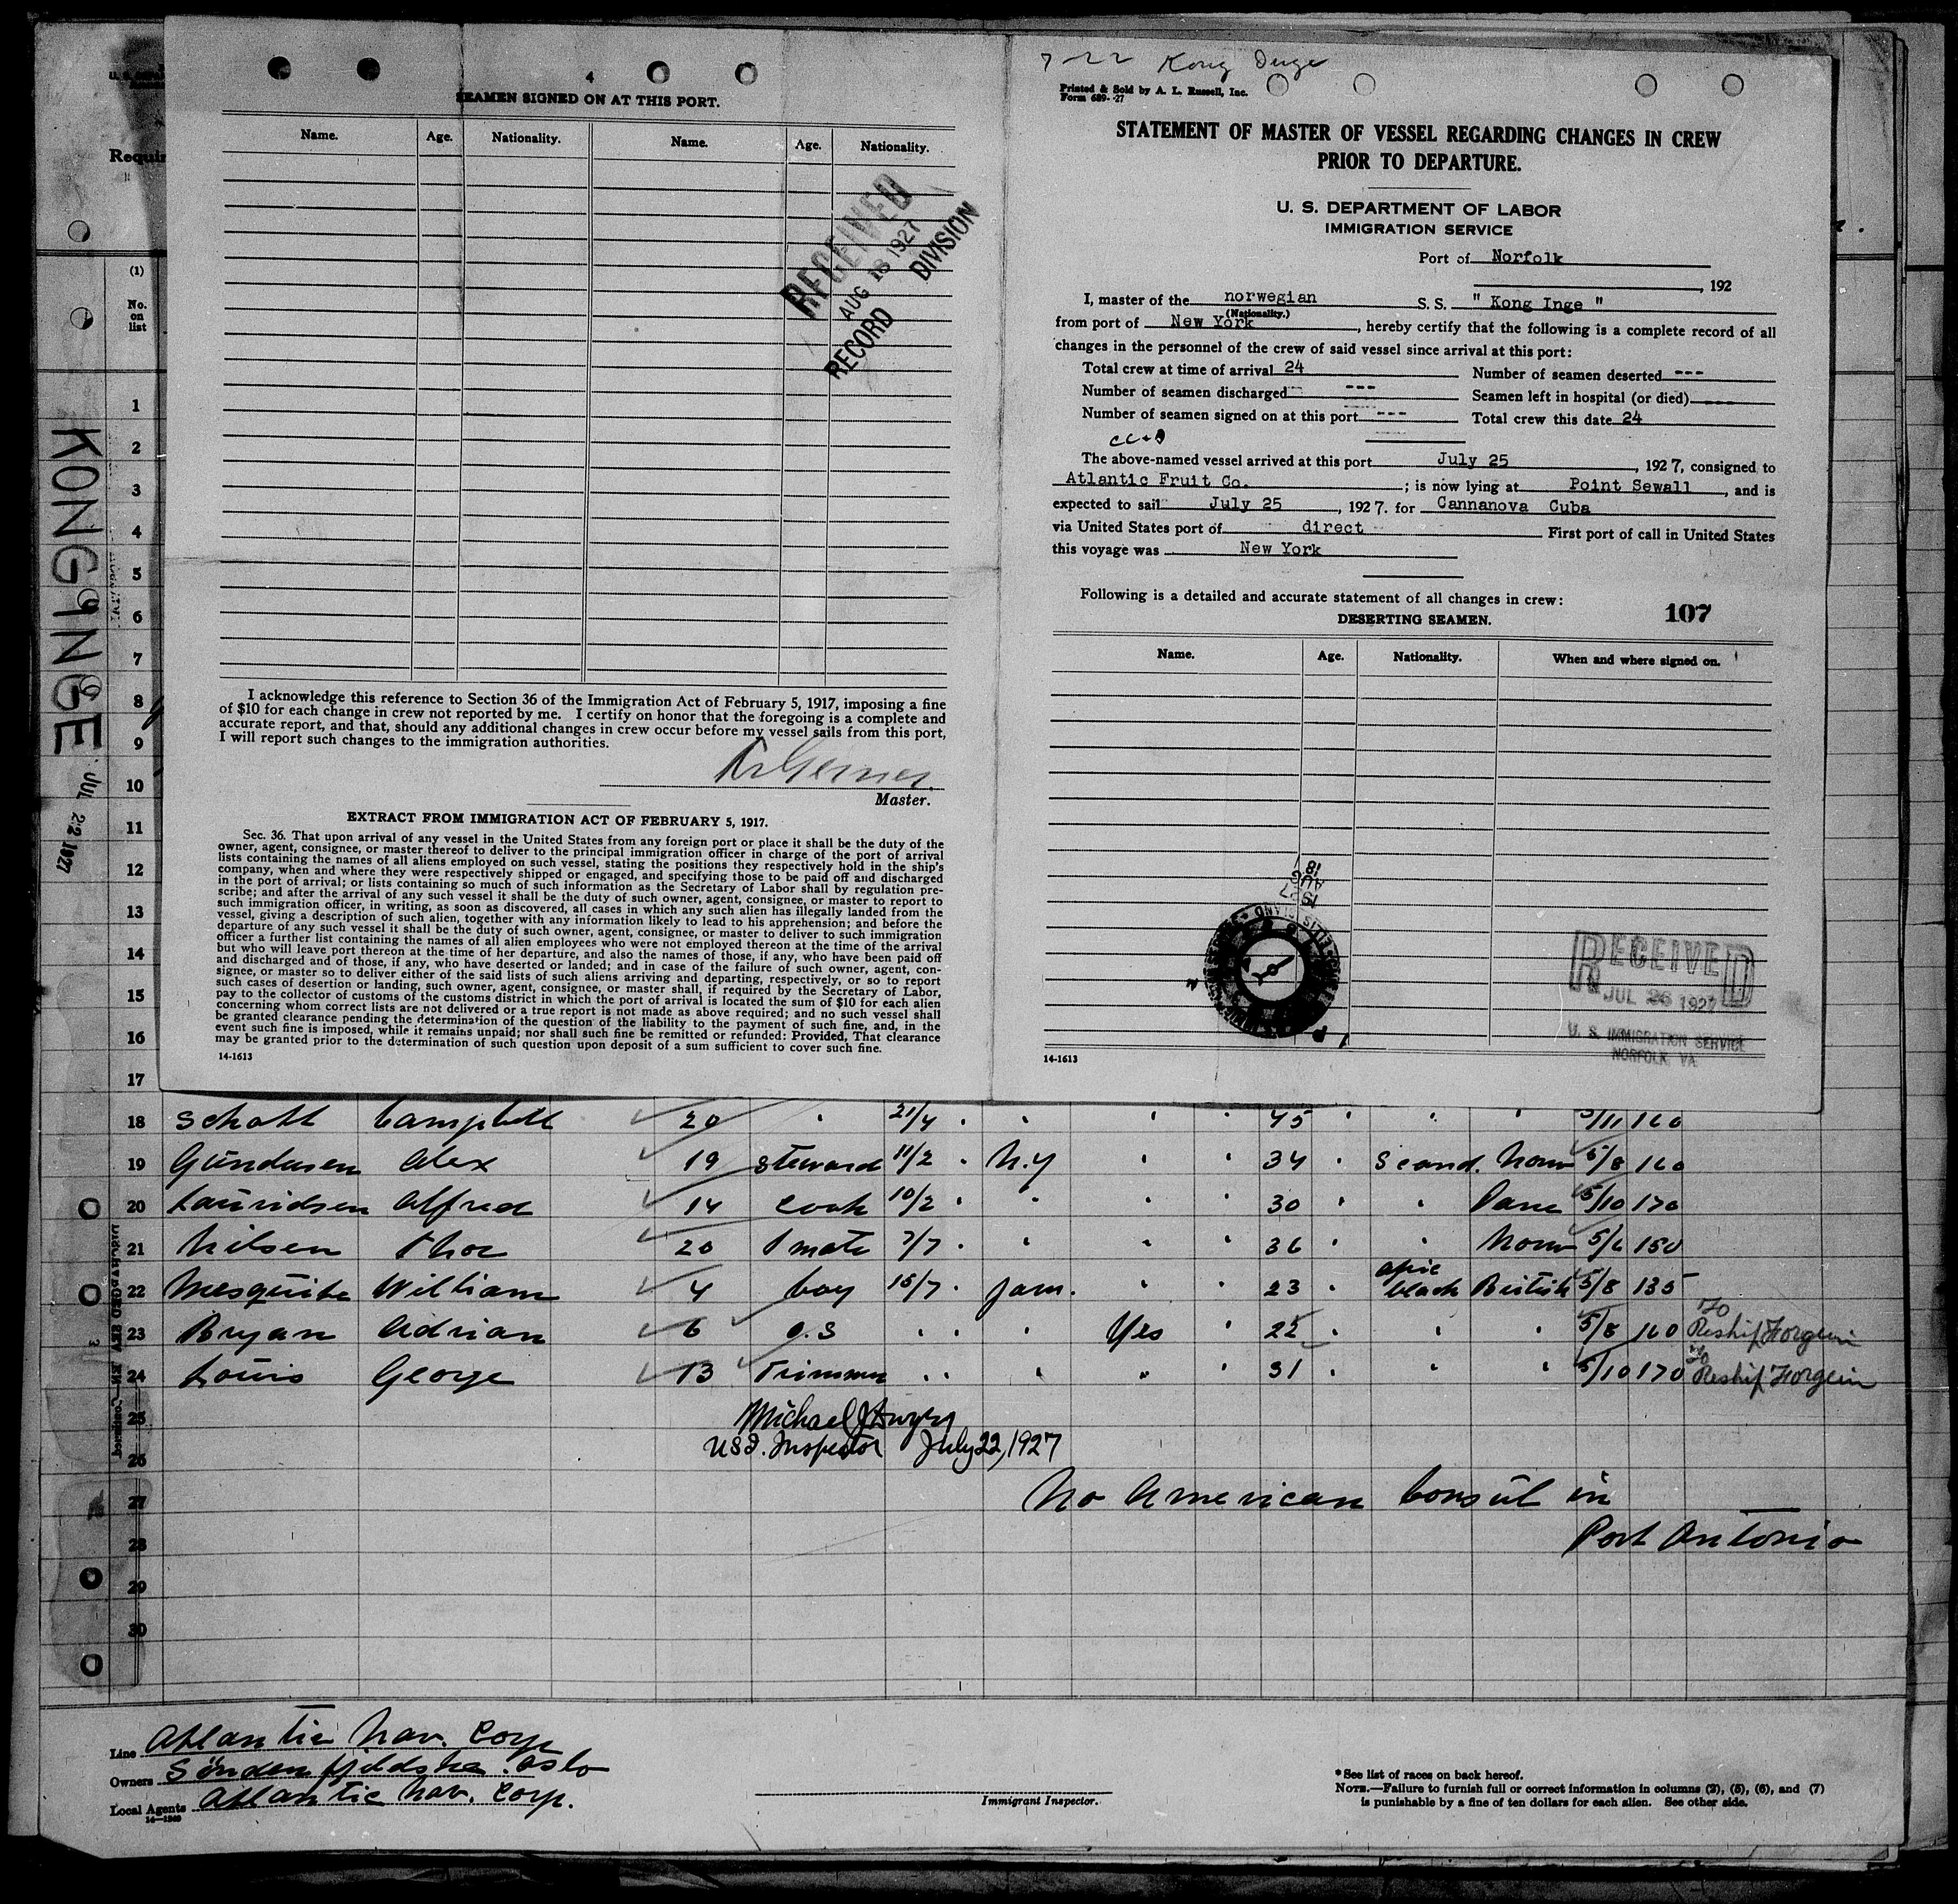 4
SEAMEN SIGNED ON AT THIS PORT.
Name. Age. Nationality. Name. Age. Nationality.
RECEIVED
AUG 18 1927
RECORD DIVISION
I acknowledge this reference to Section 36 of the Immigration Act of February 5, 1917, imposing a fine
of $10 for each change in crew not reported by me. I certify on honor that the foregoing is a complete and
accurate report, and that, should any additional changes in crew occur before my vessel sails from this port,
I will report such changes to the immigration authorities.
Master.
EXTRACT FROM IMMIGRATION ACT OF FEBRUARY 5, 1917.
Sec. 36. That upon arrival of any vessel in the United States from any foreign port or place it shall be the duty of the
owner, agent, consignee, or master thereof to deliver to the principal immigration officer in charge of the port of arrival
lists containing the names of all aliens employed on such vessel, stating the positions they respectively hold in the ship's
company, when and where they were respectively shipped or engaged, and specifying those to be paid off and discharged
in the port of arrival; or lists containing so much of such information as the Secretary of Labor shall by regulation pre-
scribe; and after the arrival of any such vessel it shall be the duty of such owner, agent, consignee, or master to report to
such immigration officer, in writing, as soon as discovered, all cases in which any such alien has illegally landed from the
vessel, giving a description of such alien, together with any information likely to lead to his apprehension; and before the
departure of any such vessel it shall be the duty of such owner, agent, consignee, or master to deliver to such immigration
officer a further list containing the names of all alien employees who were not employed thereon at the time of the arrival
but who will leave port thereon at the time of her departure, and also the names of those, if any, who have been paid off
and discharged and of those, if any, who have deserted or landed; and in case of the failure of such owner, agent, con-
signee, or master so to deliver either of the said lists of such aliens arriving and departing, respectively, or so to report
such cases of desertion or landing, such owner, agent, consignee, or master shall, if required by the Secretary of Labor,
pay to the collector of customs of the customs district in which the port of arrival is located the sum of $10 for each alien
concerning whom correct lists are not delivered or a true report is not made as above required; and no such vessel shall
be granted clearance pending the determination of the question of the liability to the payment of such fine, and, in the
event such fine is imposed, while it remains unpaid; nor shall such fine be remitted or refunded: Provided, That clearance
may be granted prior to the determination of such question upon deposit of a sum sufficient to cover such fine.
14-1613
7-22 Kong Inge
Printed & Sold by A. L. Russell, Inc.
Form 689--27
STATEMENT OF MASTER OF VESSEL REGARDING CHANGES IN CREW
PRIOR TO DEPARTURE.
U. S. DEPARTMENT OF LABOR
IMMIGRATION SERVICE
Port of Norfolk
, 192
I, master of the norwegian S. S. " Kong Inge "
(Nationality.)
from port of New York, hereby certify that the following is a complete record of all
changes in the personnel of the crew of said vessel since arrival at this port:
Total crew at time of arrival 24 Number of seamen deserted ---
Number of seamen discharged --- Seamen left in hospital (or died) ----
Number of seamen signed on at this port --- Total crew this date 24
The above-named vessel arrived at this port July 25, 1927, consigned to
Atlantic Fruit Co.; is now lying at Point Sewall, and is
expected to sail July 25, 1927. for Cannanova Cuba
via United States port of direct First port of call in United States
this voyage was New York
Following is a detailed and accurate statement of all changes in crew:
107
DESERTING SEAMEN.
Name. Age. Nationality. When and where signed on.
RECEIVED
JUL 26 1927
U. S. IMMIGRATION SERVICE
NORFOLK, VA
14-1613
KONG INGE
JUL 22 1927
Requir
(1)
No.
on
list
1
2
3
4
5
6
7
8
9
10
11
12
13
14
15
16
17
18 Schott Campbell 20 21/4 45 5/11 160
19 Gundersen Alex 19 Steward 11/2 N.Y 34 Scand. Norw 5/8 160
20 Lauridsen Alfred 14 Cook 10/2 30 Dane 5/10 170
21 Nilsen Thor 20 1 mate 7/7 36 Norw 5/6 150
22 Mesquite William 4 boy 15/7 Jam. 23 black British 5/8 135
23 Bryan Adrian 6 O.S Yes 22 5/8 160 Reship Forgein
24 Louis George 13 Trimmer 31 5/10 170 Reship Forgein
25
26
27
28
29
30
Michael J Dwyer
USI. Inspector July 22, 1927
No American Consul in
Port Antonio
Line Atlantic Nav. Corp
Owners Söndenfjeldske. Oslo
Local Agents Atlantic Nav. Corp.
14-1240
Immigrant Inspector.
* See list of races on back hereof.
NOTE.—Failure to furnish full or correct information in columns (2), (5), (6), and (7)
is punishable by a fine of ten dollars for each alien. See other side.